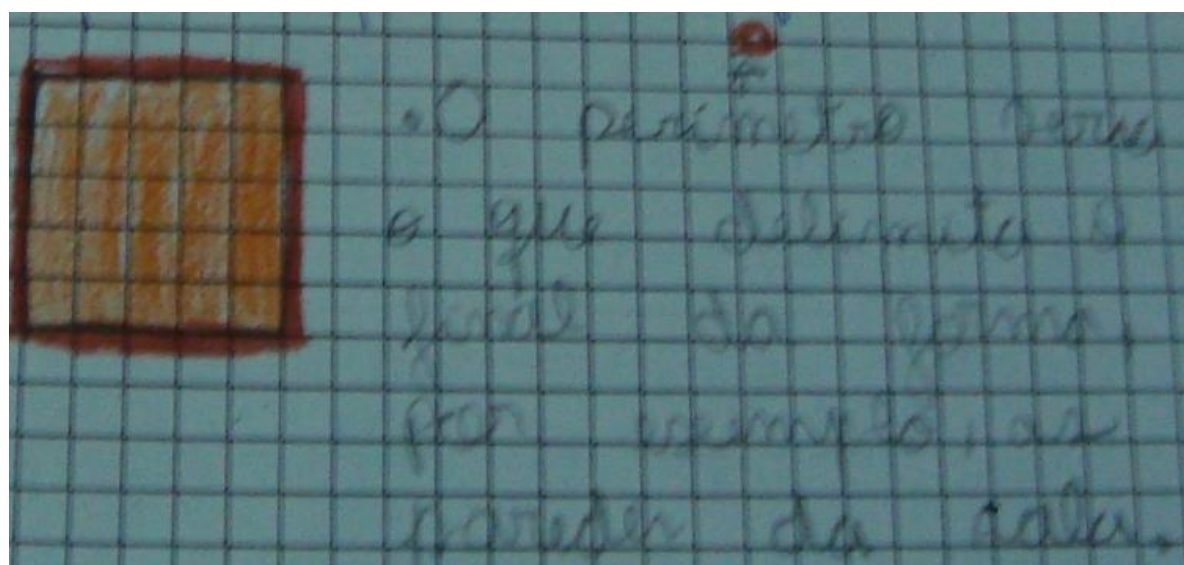 .O perímetro seria
o que delimita o
final da forma,
por exemplo, as
paredes da sala.